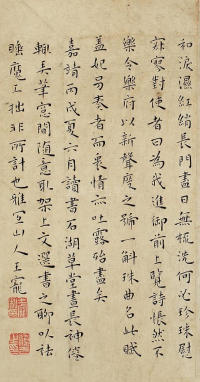 和淚濕紅綃長門盡日無梳洗何必珍珠慰
寂寥對使者曰為我進御前上覽詩悵然不
樂令樂府以新聲度之號一斛珠曲名此賦
蓋妃自奏者而哀情亦吐露殆盡矣
嘉靖丙戌夏六月讀書石湖草堂晝長神倦
輒弄筆窓間隨意取架上文選書之聊以祛
睡魔工拙非所計也雅宜山人王寵